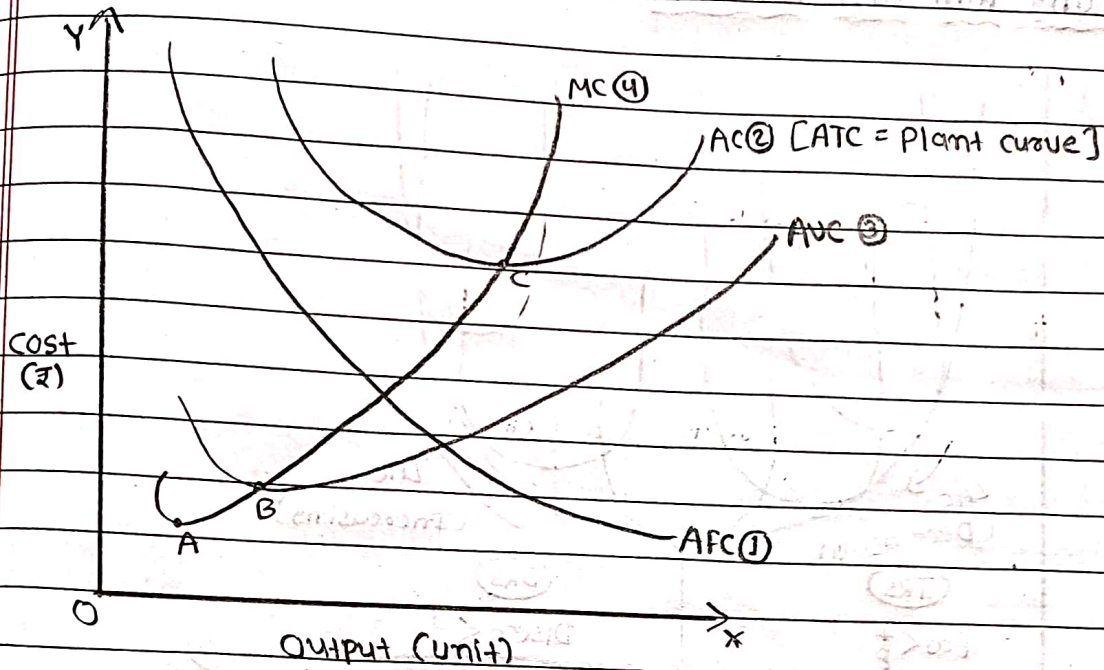 Y
MC ④
AC② [ATC = Plant curve]
AVC ③
C
COST
(₹)
B
A
AFC①
O
X
Output (unit)